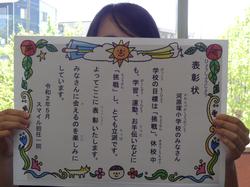 表彰状
河原塚小学校のみなさん
学校の目標は「挑戦」。休校中
も、学習、運動、お手伝いなどに
「挑戦」し、とても立派です。
よってここに表彰いたします。
みなさんに会えるのを楽しみに
しています。
令和2年5月
スマイル担任一同